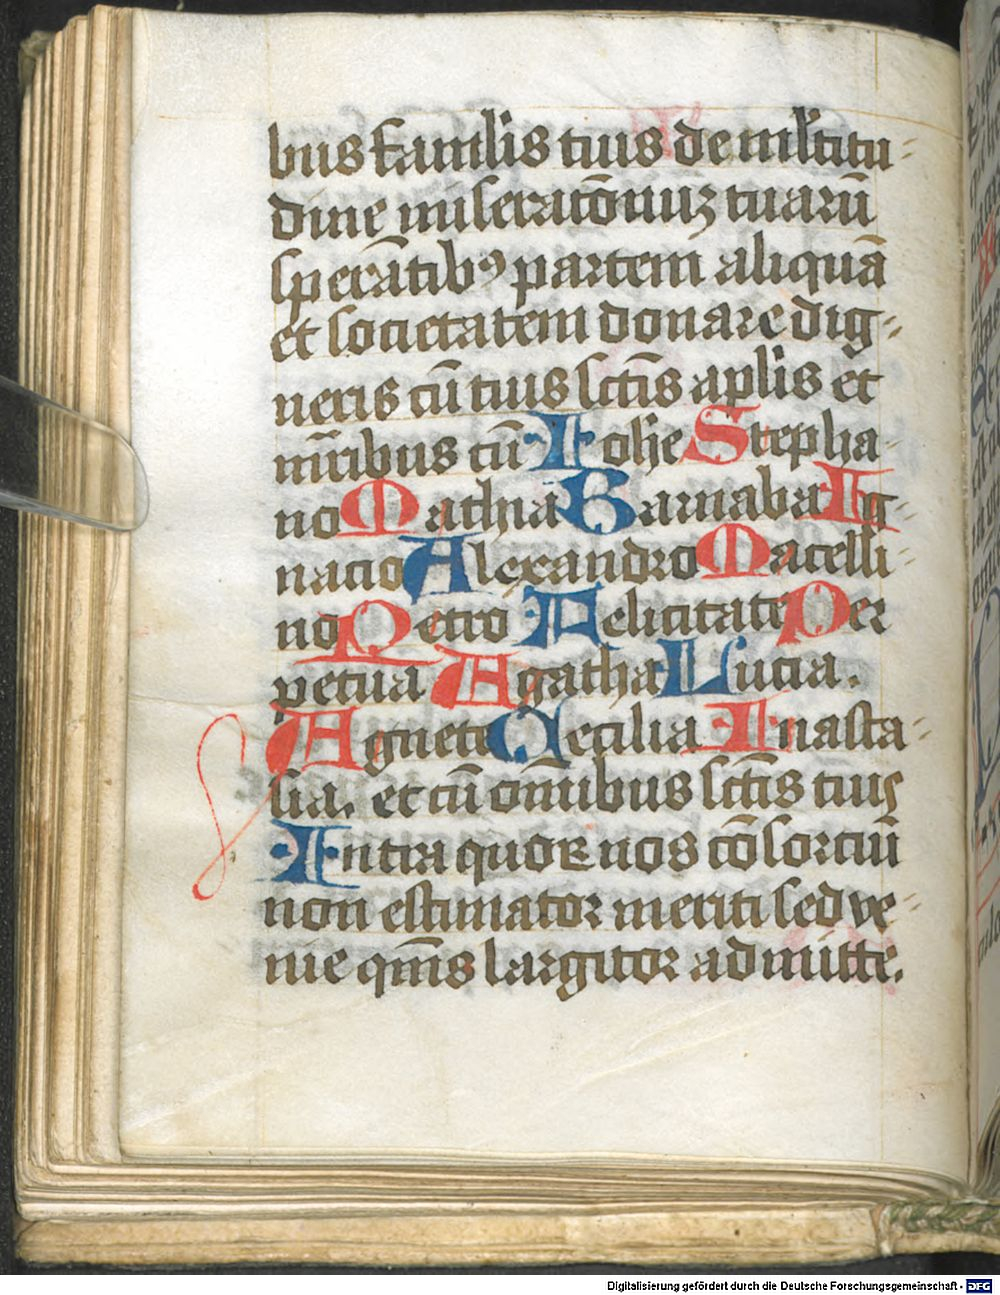 bus famulis tuis de mltitu⸗
dine miseratōnuꝫ tuarū
sperātibꝰ partem aliquā
et societatem donare dig⸗
neris cū tuis sctīs aplis et
mr̄ibus cū Iohe Stepha⸗
no Mathia Barnaba Ig⸗
nacio Alexandro Marcelli⸗
no Petro Felicitate Per
petua Agatha Lucia.
Agnete Cecilia Anasta⸗
sia. et cū om̄ibus sctīs tuis
Intra quoꝝ nos cōsorciū
non estimator meriti sed ve⸗
nie qm̄s largitor admitte.
Digitalisierung gefördert durch die Deutsche Forschungsgemeinschaft - DFG